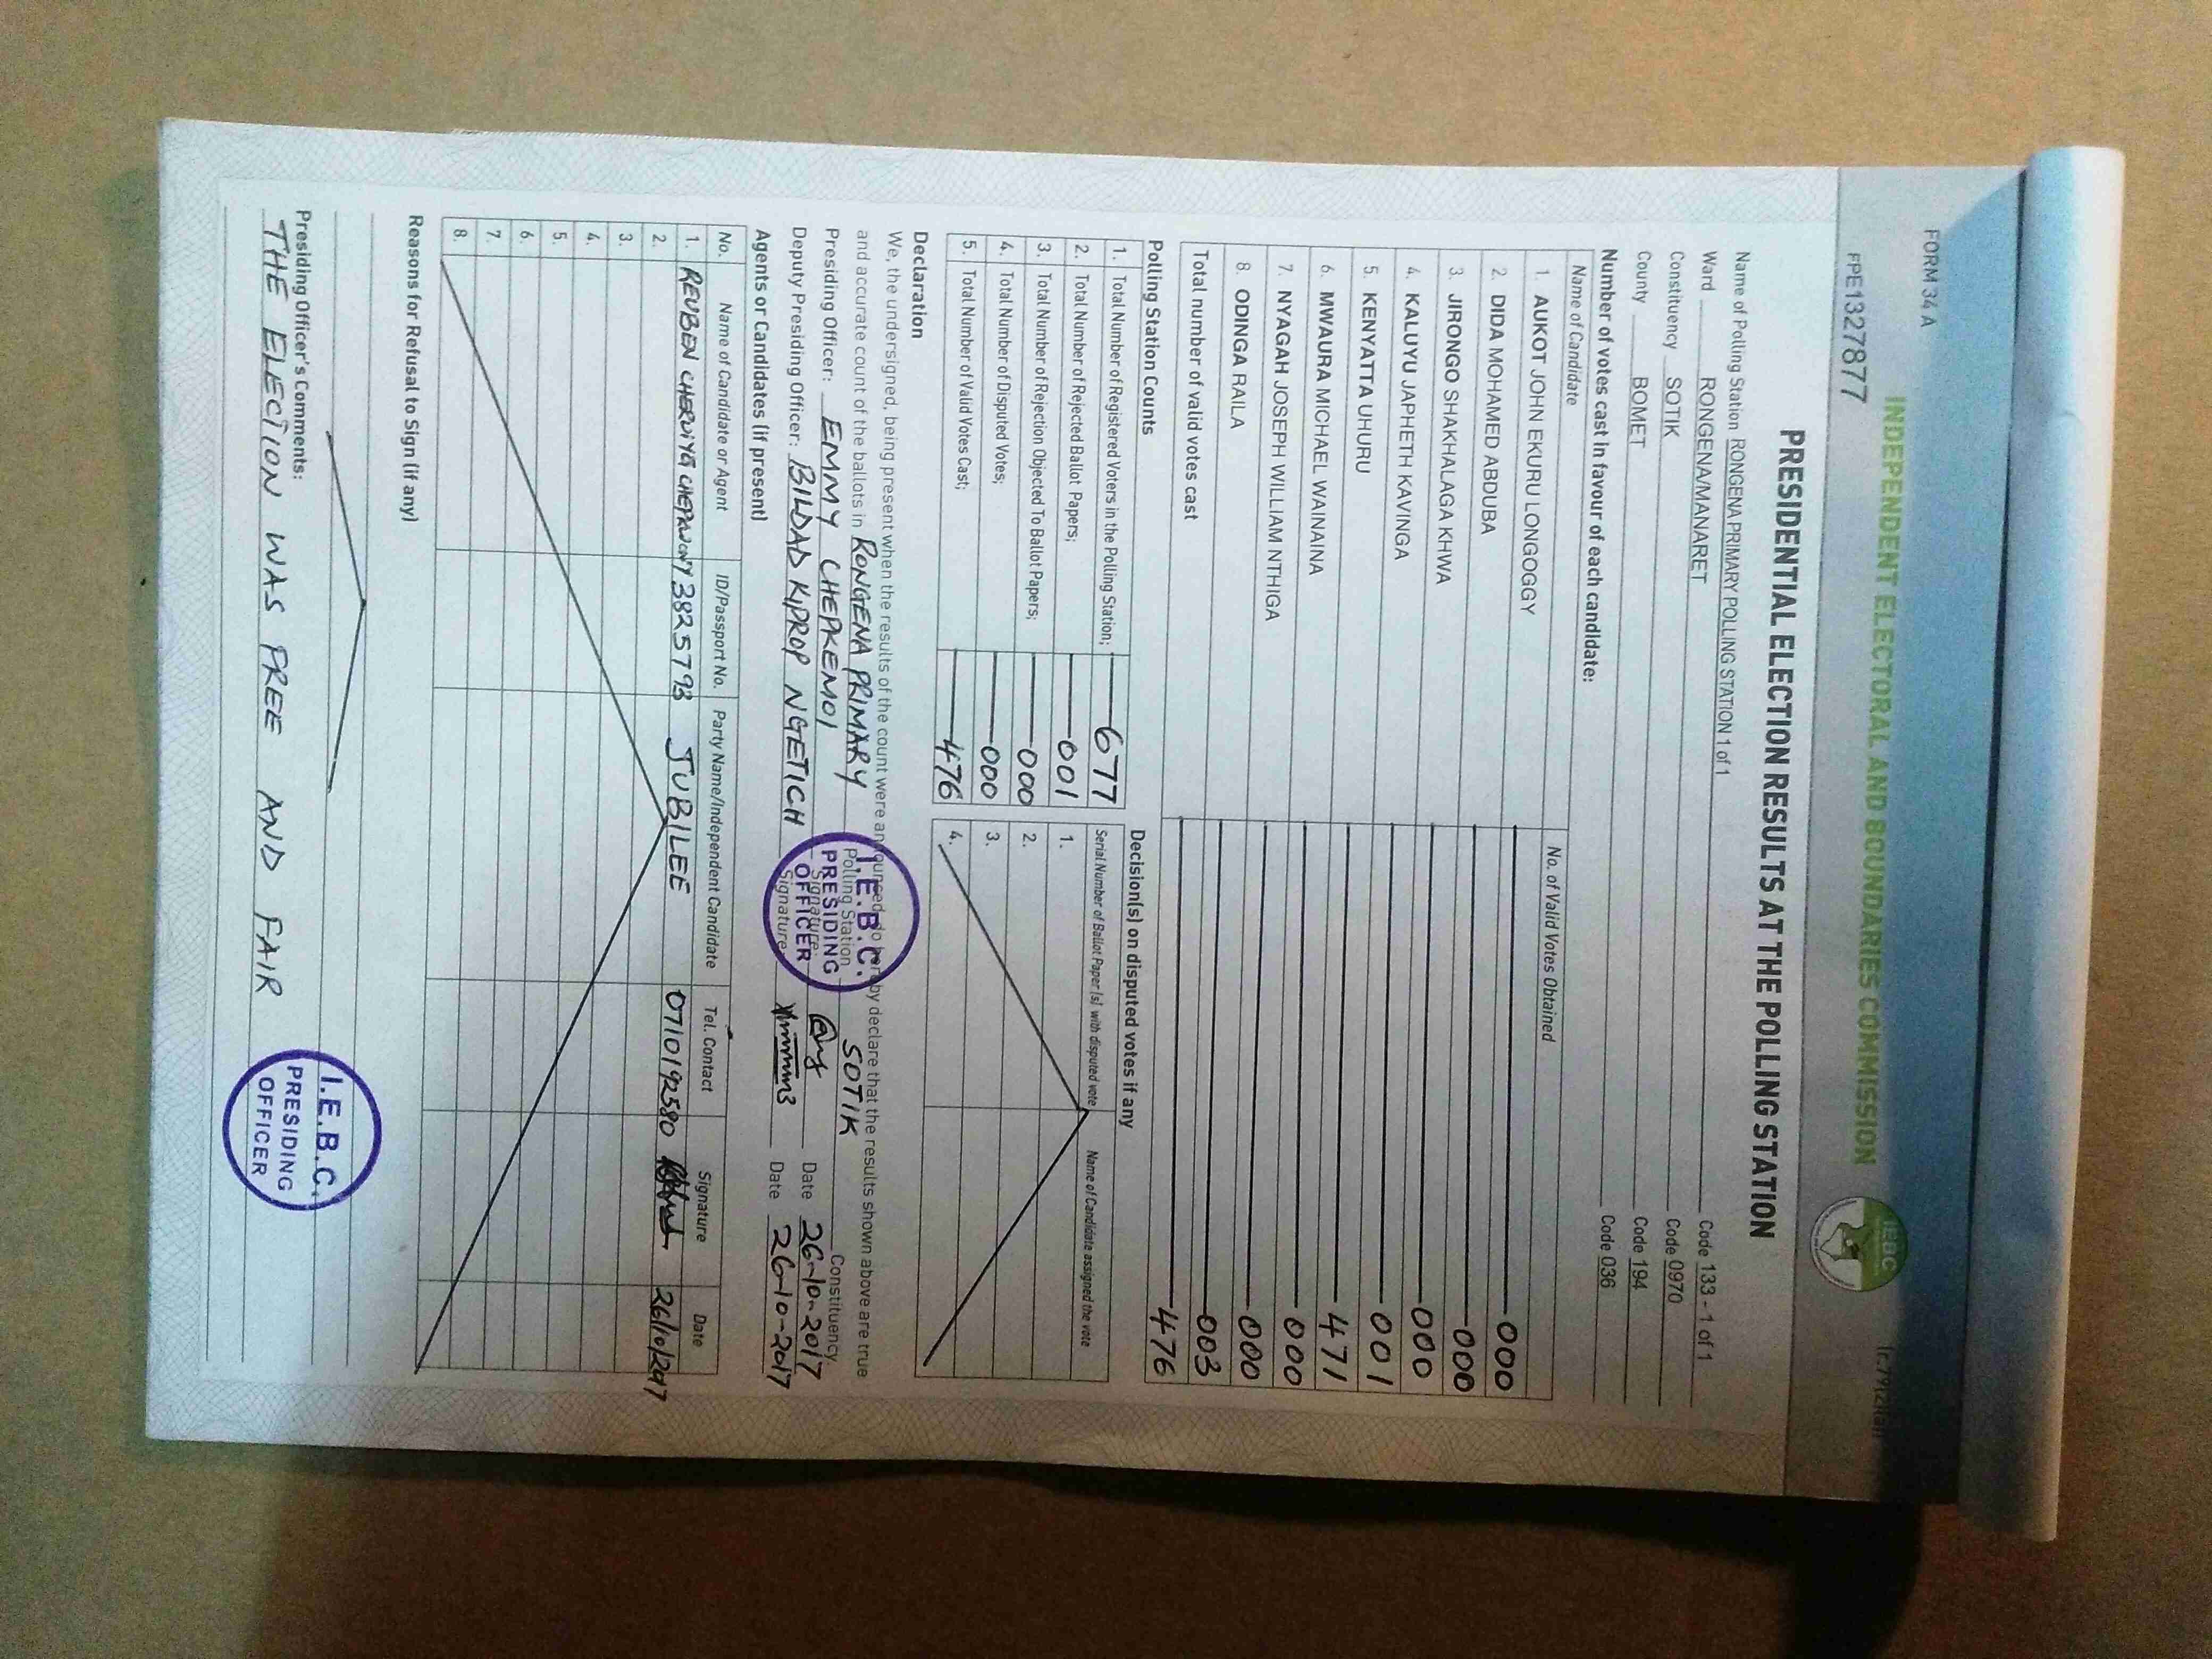 FORM 34 A
INDEPENDENT ELECTORAL AND BOUNDARIES COMMISSION
IEBC
FPE1327877
PRESIDENTIAL ELECTION RESULTS AT THE POLLING STATION
Name of Polling Station RONGENA PRIMARY POLLING STATION 1 of 1 Code 133 - 1 of 1
Ward RONGENA/MANARET Code 0970
Constituency SOTIK Code 194
County BOMET Code 036
Number of votes cast in favour of each candidate:
Name of Candidate No. of Valid Votes Obtained
1. AUKOT JOHN EKURU LONGOGGY 000
2. DIDA MOHAMED ABDUBA 000
3. JIRONGO SHAKHALAGA KHWA 000
4. KALUYU JAPHETH KAVINGA 001
5. KENYATTA UHURU 471
6. MWAURA MICHAEL WAINAINA 000
7. NYAGAH JOSEPH WILLIAM NTHIGA 000
8. ODINGA RAILA 003
Total number of valid votes cast 476
Polling Station Counts Decision(s) on disputed votes if any
1. Total Number of Registered Voters in the Polling Station; 677 Serial Number of Ballot Paper (s) with disputed vote Name of Candidate assigned the vote
2. Total Number of Rejected Ballot Papers; 001 1.
3. Total Number of Rejection Objected To Ballot Papers; 000 2.
4. Total Number of Disputed Votes; 000 3.
5. Total Number of Valid Votes Cast; 476 4.
Declaration
We, the undersigned, being present when the results of the count were announced, do hereby declare that the results shown above are true
and accurate count of the ballots in RONGENA PRIMARY Polling Station SOTIK Constituency
Presiding Officer: EMMY CHEPKEMOI Signature: Date 26-10-2017
Deputy Presiding Officer: BILDAD KIPROP NGETICH Signature: Date 26-10-2017
I.E.B.C.
PRESIDING
OFFICER
Agents or Candidates (if present)
No. Name of Candidate or Agent ID/Passport No. Party Name/Independent Candidate Tel. Contact Signature Date
1. REUBEN 38257793 JUBILEE 0710192580 26/10/2017
2.
3.
4.
5.
6.
7.
8.
Reasons for Refusal to Sign (if any)
Presiding Officer's Comments:
THE ELECTION WAS FREE AND FAIR
I.E.B.C.
PRESIDING
OFFICER